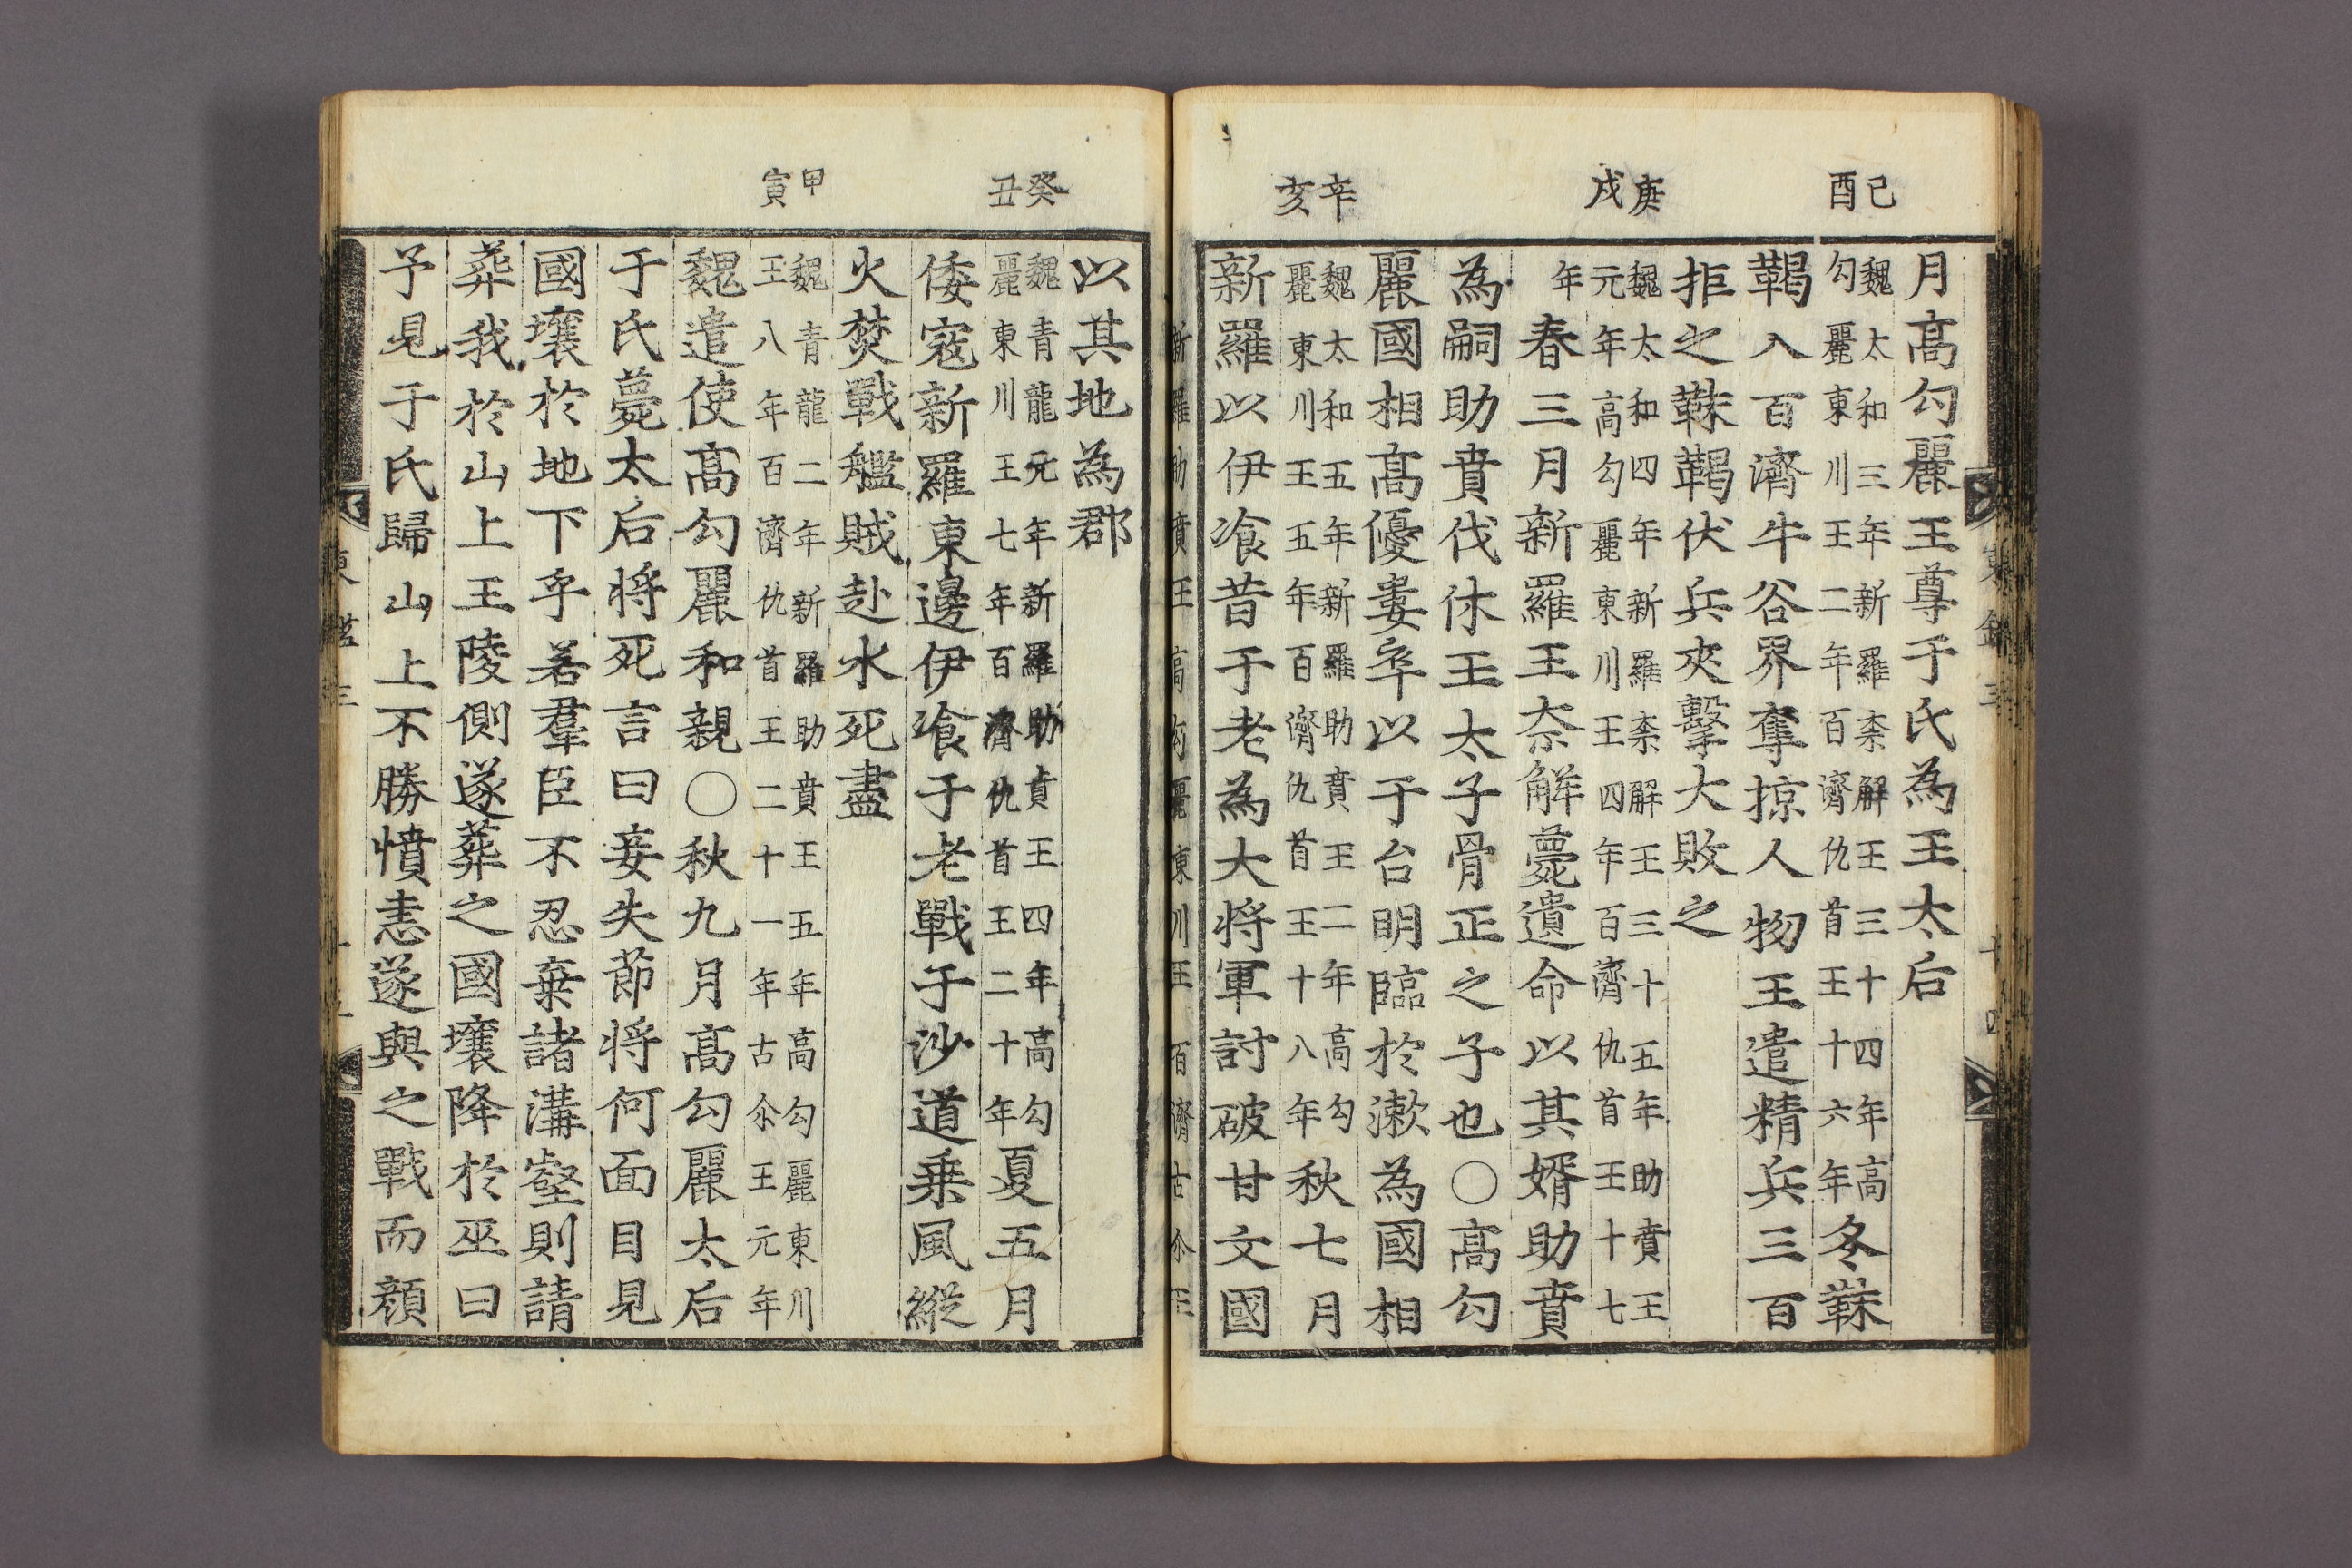 己酉
庚戌
辛亥
月高勾麗王尊于氏為王太后
魏太和三年新羅柰解王三十四年高
勾麗東川王二年百濟仇首王十六年
冬靺
鞨入百濟牛谷界奪掠人物王遣精兵三百
拒之靺鞨伏兵夾擊大敗之
魏太和四年新羅柰解王三十五年助賁王
元年高勾麗東川王四年百濟仇首王十七
年
春三月新羅王奈解薨遺命以其婿助賁
為嗣助賁伐休王太子骨正之子也〇高勾
麗國相高優婁卒以于台明臨於漱為國相
魏太和五年新羅助賁王二年高勾
麗東川王五年百濟仇首王十八年
秋七月
新羅以伊飡昔于老為大将軍討破甘文國
癸丑
甲寅
以其地為郡
魏青龍元年新羅助賁王四年高勾
麗東川王七年百濟仇首王二十年
夏五月
倭寇新羅東邊伊飡于老戰于沙道乗風縱
火焚戰艦賊赴水死盡
魏青龍二年新羅助賁王五年高勾麗東川
王八年百濟仇首王二十一年古尒王元年
魏遣使高勾麗和親〇秋九月高勾麗太后
于氏薨太后将死言曰妾失節将何面目見
國壤於地下乎若羣臣不忍棄諸溝壑則請
葬我於山上王陵側遂葬之國壤降於巫曰
予見于氏歸山上不勝憤恚遂與之戰而顔